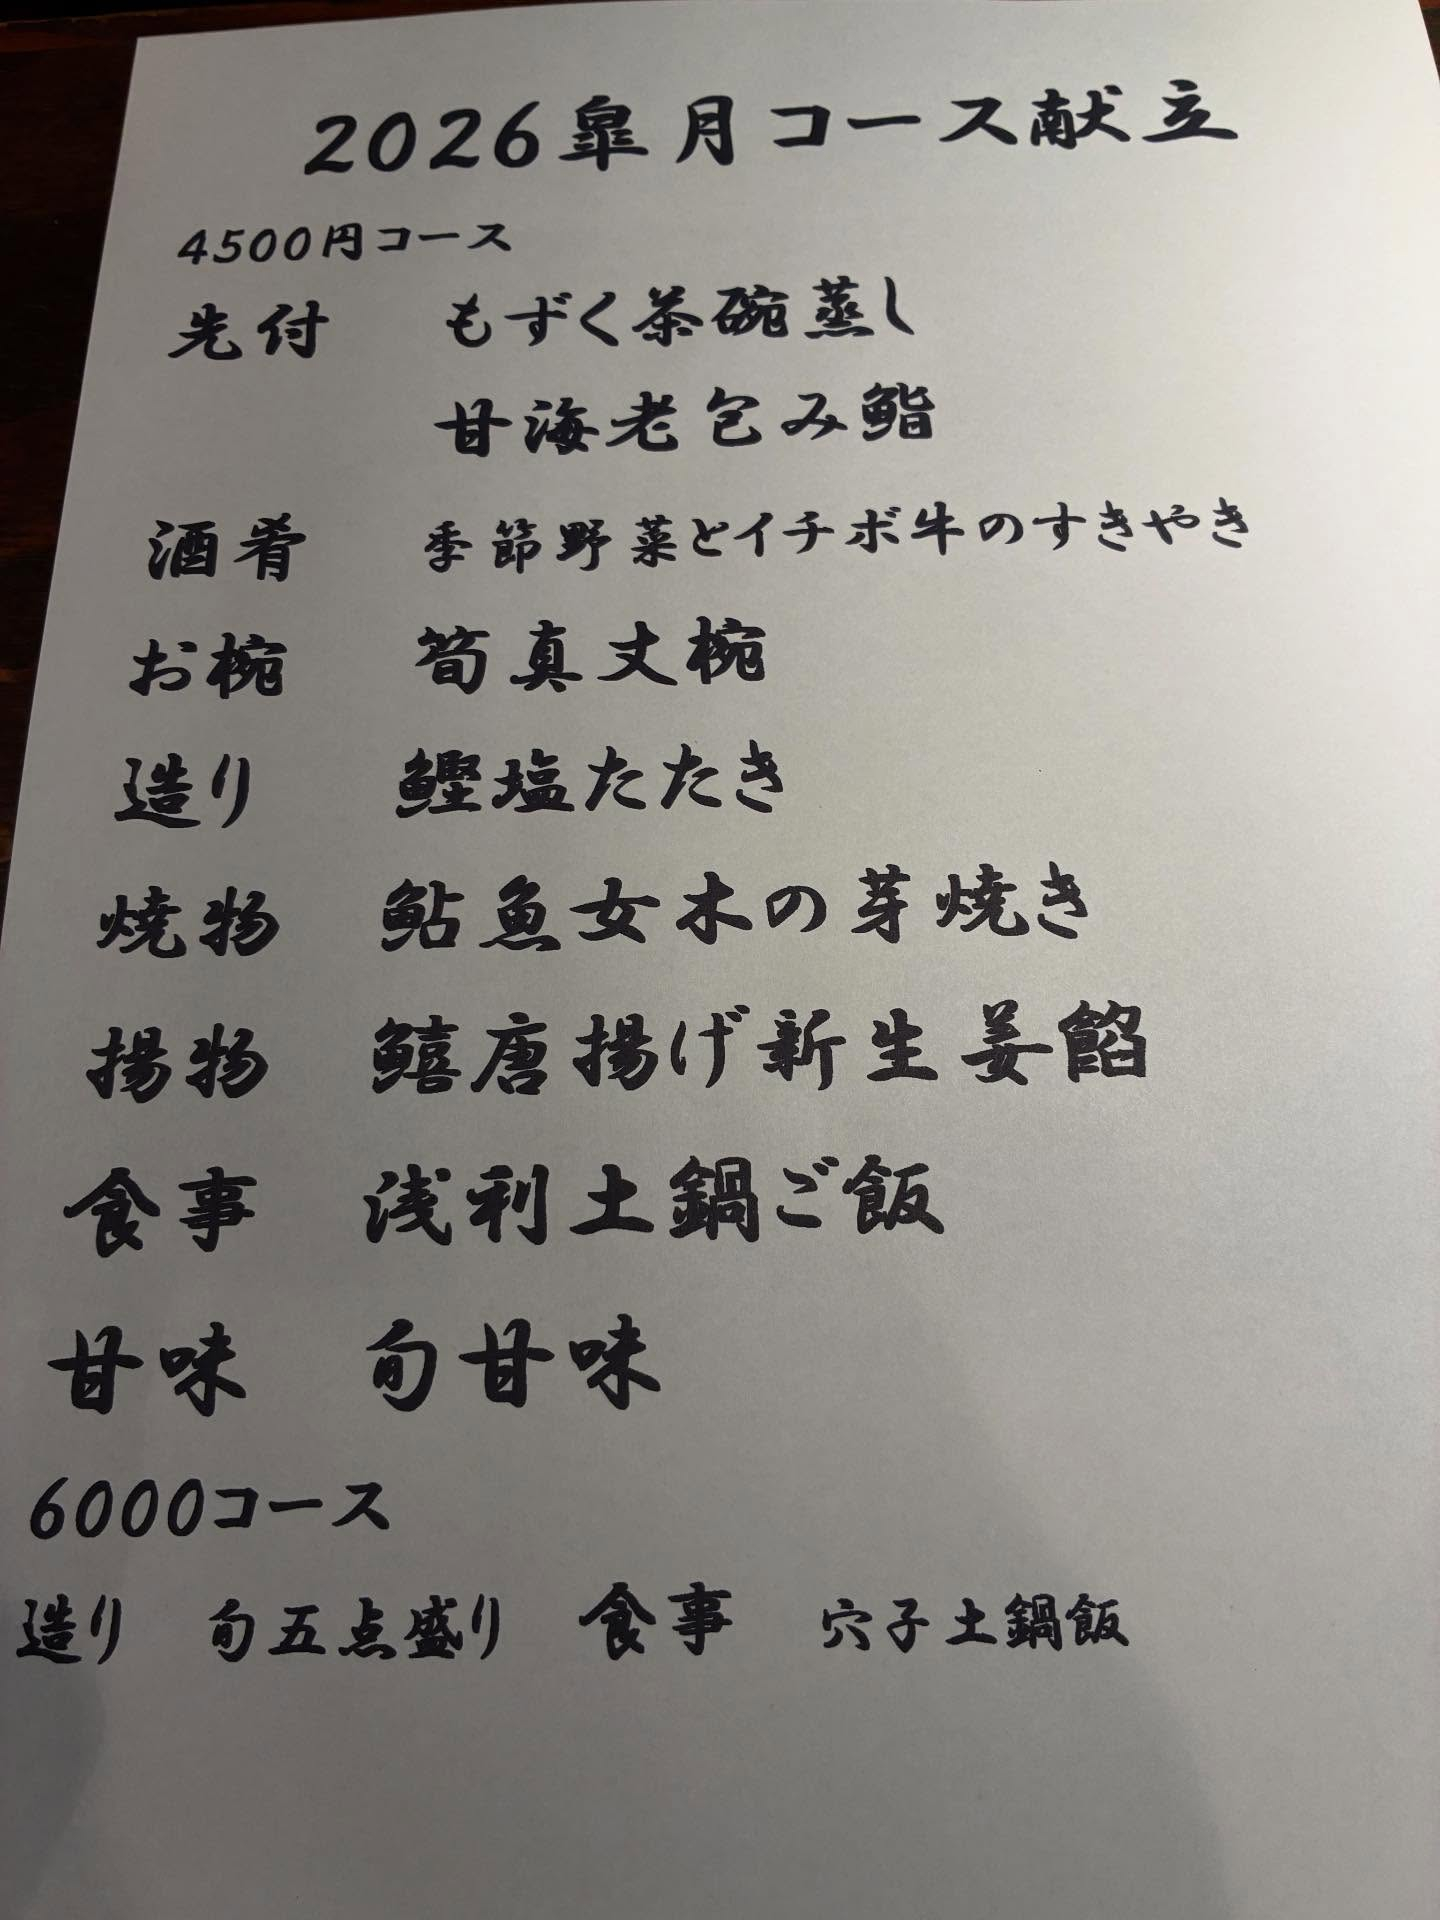 2026皐月コース献立
4500円コース
先付 もずく茶碗蒸し
甘海老包み鮨
酒肴 季節野菜とイチボ牛のすきやき
お椀 筍真丈椀
造り 鰹塩たたき
焼物 鮎魚女木の芽焼き
揚物 鱚唐揚げ新生姜餡
食事 浅利土鍋ご飯
甘味 旬甘味
6000コース
造り 旬五点盛り 食事 穴子土鍋飯